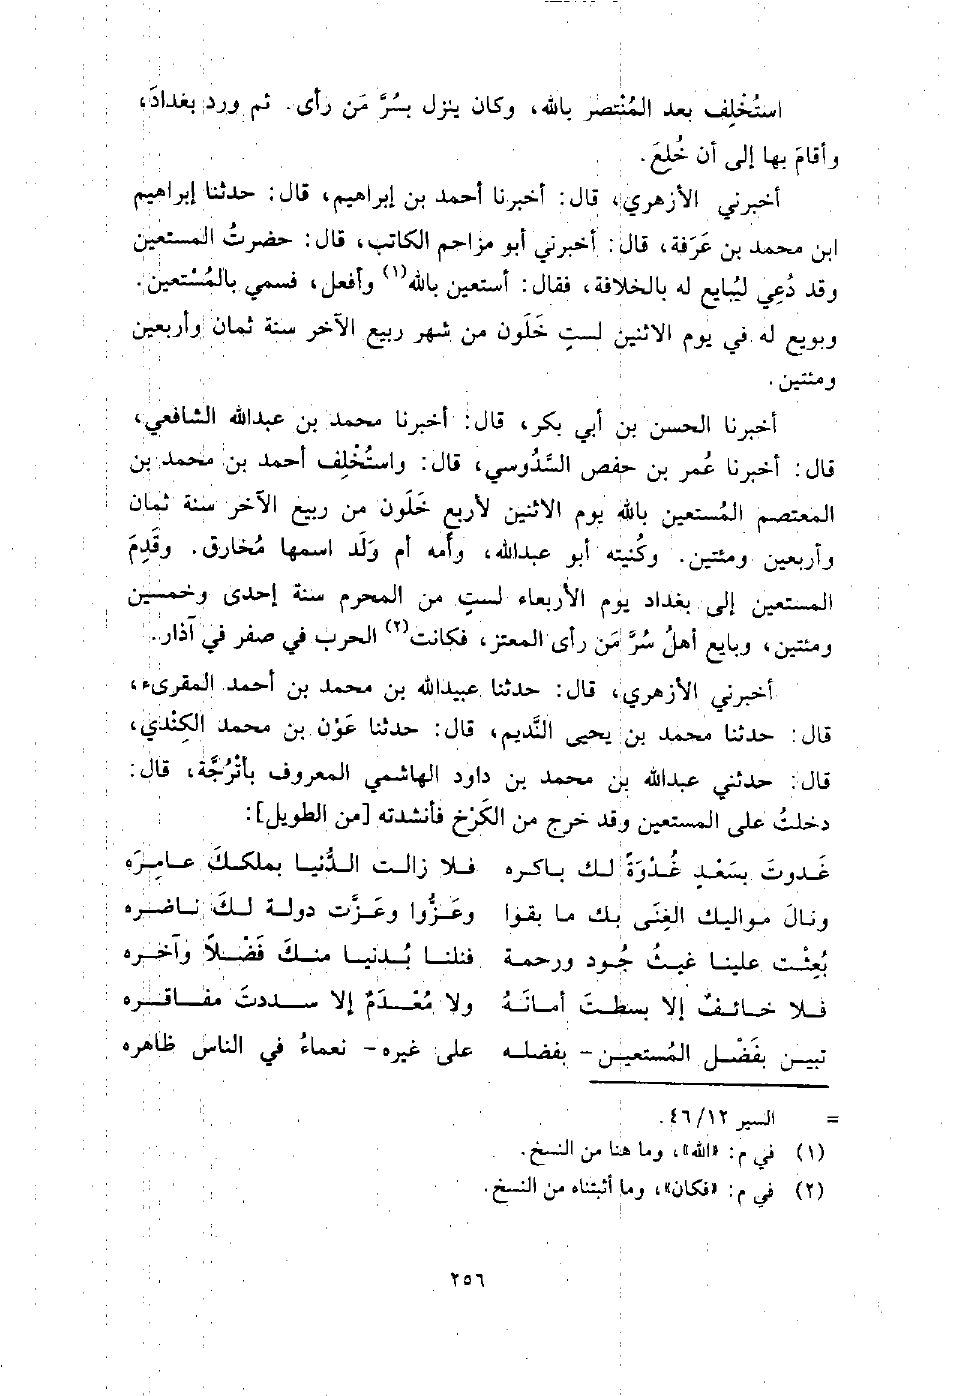 استُخْلِف بعد المُنْتصر بالله، وكان ينزل بسُرَّ مَن رأى. ثم ورد بغدادَ،
وأقامَ بها إلى أن خُلِعَ.
أخبرني الأزهري، قال: أخبرنا أحمد بن إبراهيم، قال: حدثنا إبراهيم
ابن محمد بن عَرَفة، قال: أخبرني أبو مزاحم الكاتب، قال: حضرتُ المستعين
وقد دُعِي ليُبايع له بالخلافة، فقال: أستعين بالله(١) وأفعل، فسمي بالمُسْتعين.
وبويع له في يوم الاثنين لستٍ خَلَون من شهر ربيع الآخر سنة ثمان وأربعين
ومئتين.
أخبرنا الحسن بن أبي بكر، قال: أخبرنا محمد بن عبدالله الشافعي،
قال: أخبرنا عُمر بن حفص السَّدُوسي، قال: واستُخْلِف أحمد بن محمد بن
المعتصم المُستعين بالله يوم الاثنين لأربع خَلَون من ربيع الآخر سنة ثمان
وأربعين ومئتين. وكُنيته أبو عبدالله، وأمه أم وَلَد اسمها مُخارق. وقَدِمَ
المستعين إلى بغداد يوم الأربعاء لستٍ من المحرم سنة إحدى وخمسين
ومئتين، وبايع أهلُ سُرَّ مَن رأى المعتز، فكانت(٢) الحرب في صفر في آذار.
أخبرني الأزهري، قال: حدثنا عبيدالله بن محمد بن أحمد المقرىء،
قال: حدثنا محمد بن يحيى النَّديم، قال: حدثنا عَوْن بن محمد الكِنْدي،
قال: حدثني عبدالله بن محمد بن داود الهاشمي المعروف بأتْرُجَّة، قال:
دخلتُ على المستعين وقد خرج من الكَرْخ فأنشدته [من الطويل]:
غَدوتَ بسَعْدٍ غُدْوَةً لك باكره فلا زالت الدُّنيا بملكك عامِرَه
ونالَ مواليك الغِنَى بك ما بقوا وعَزُّوا وعَزَّت دولة لكَ ناضره
بُعِثْت علينا غيثُ جُود ورحمة فنلنا بُدنيا منكَ فَضْلاً وآخره
فلا خائفٌ إلا بسطتَ أمانَهُ ولا مُعْدَمٌ إلا سددتَ مفاقره
تبين بفَضْل المُستعين - بفضله على غيره- نعماءُ في الناس ظاهره
= السير ٤٦/١٢.
(١) في م: «الله»، وما هنا من النسخ.
(٢) في م: «فكان»، وما أثبتناه من النسخ.
٢٥٦